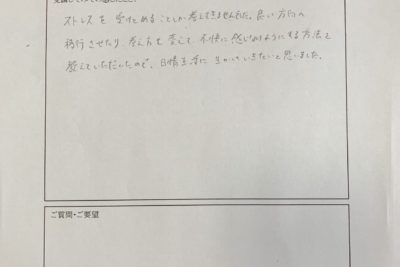 ストレスを受けとめることしか考えてきませんでした。良い方向へ
移行させたり、考え方を変えて、不快に感じないようにする方法を
教えていただしたので、日常生活に生かしていきたいと思いました。
ご質問・ご要望